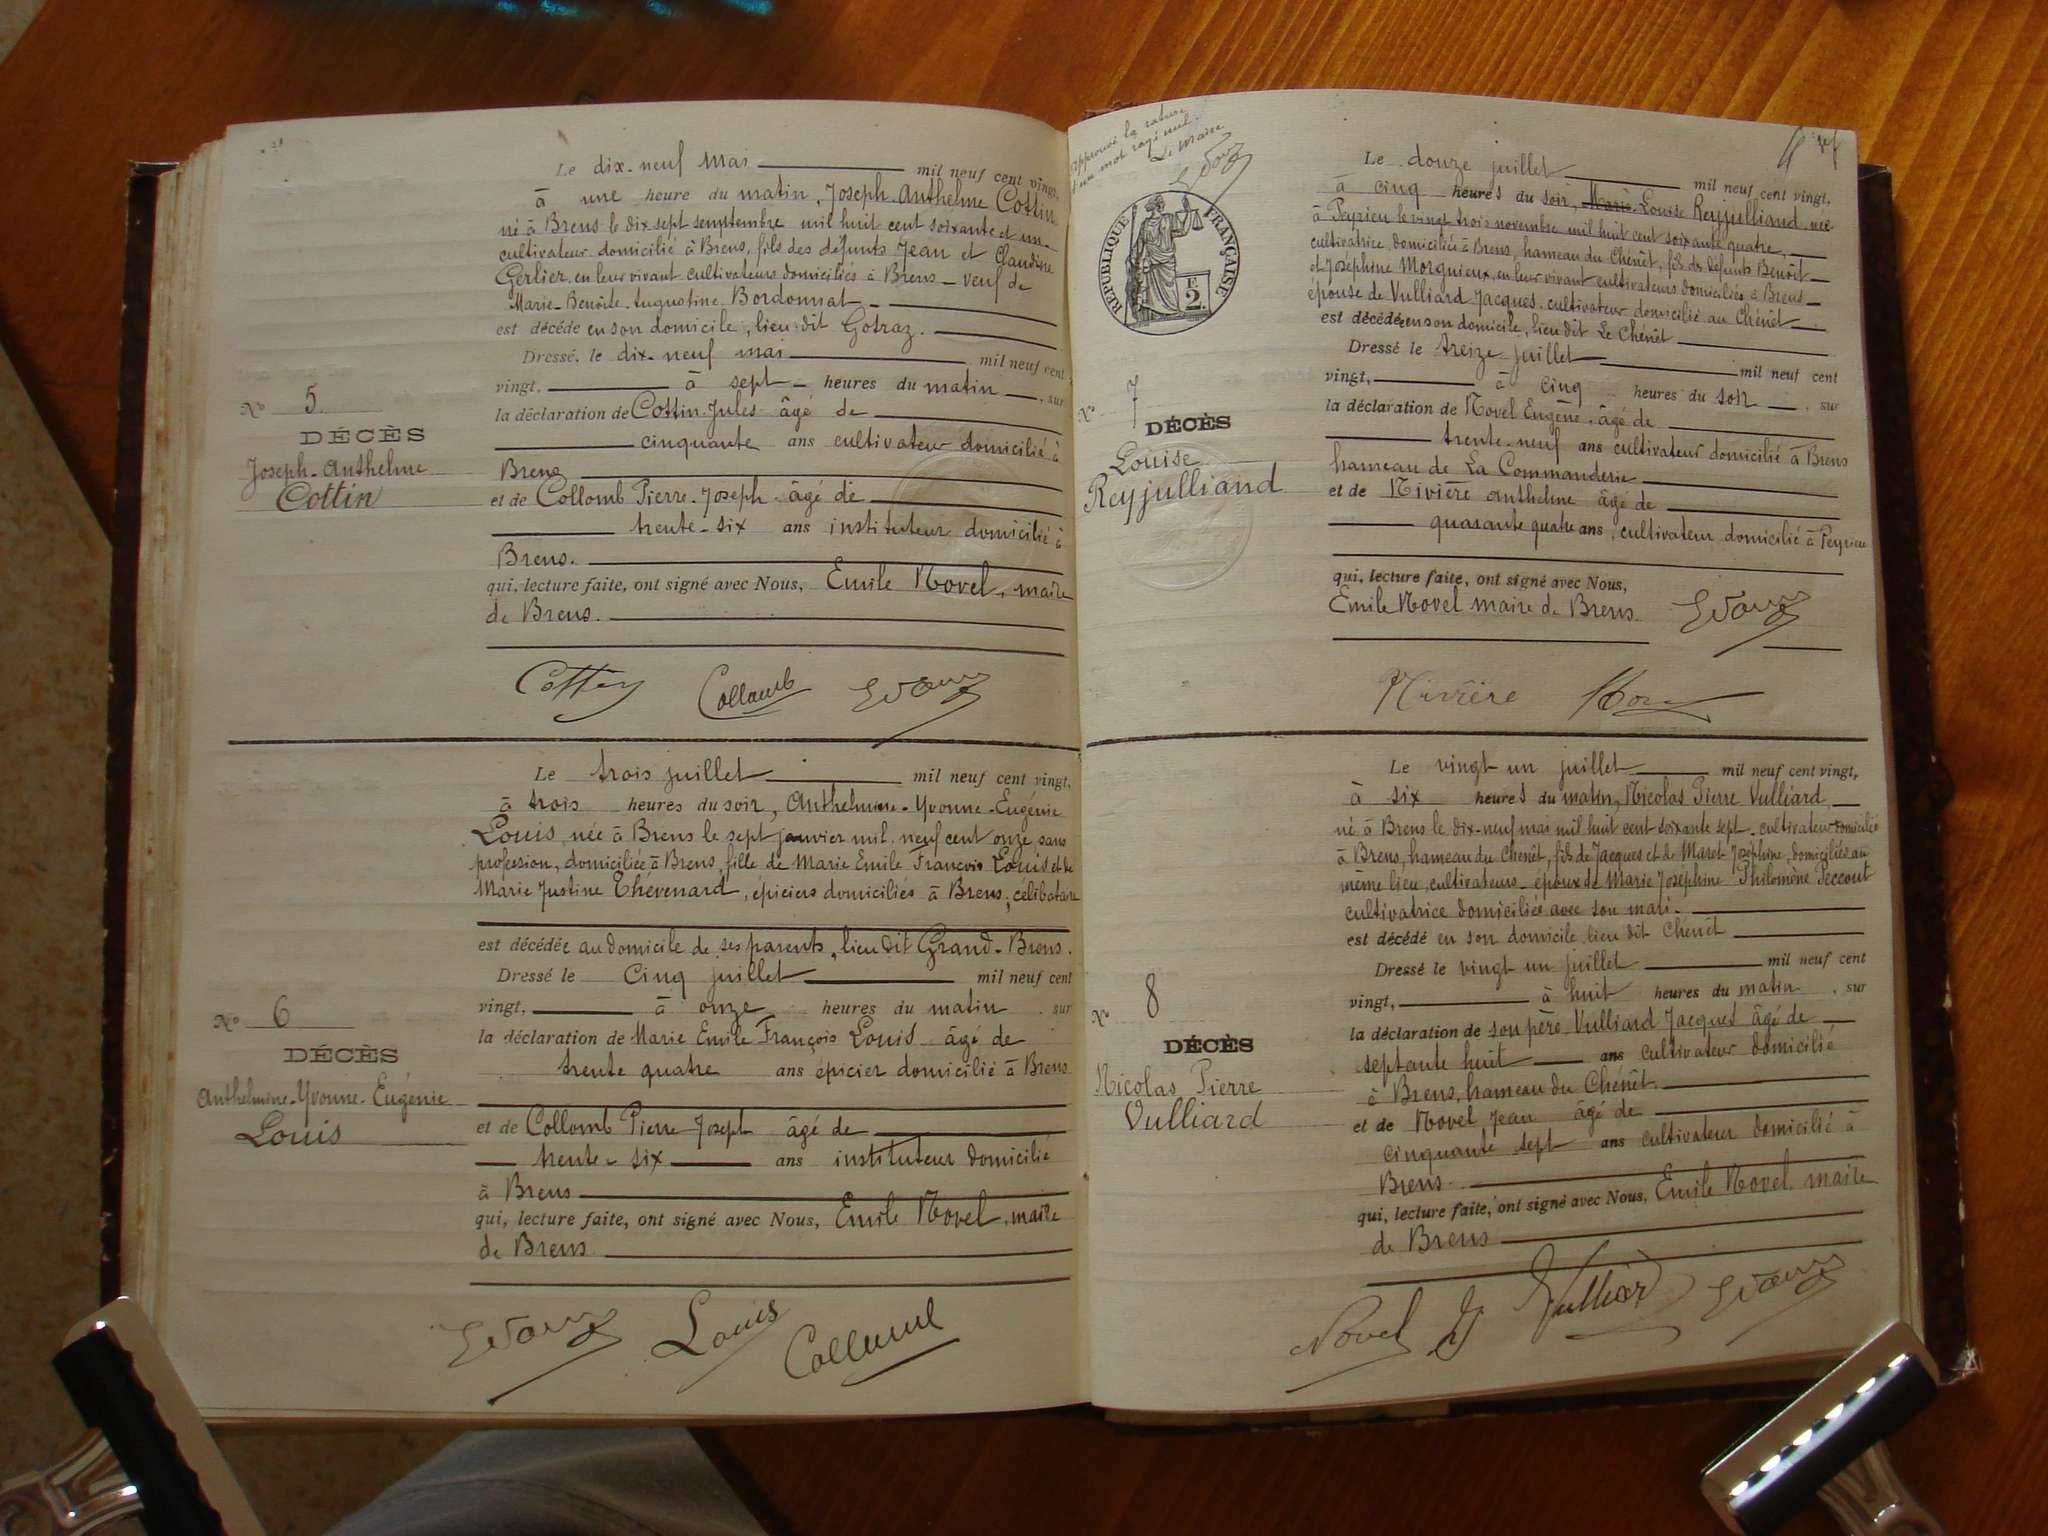 Le dix-neuf mai mil neuf cent vingt,
à une heure du matin, Joseph Anthelme Cottin
né à Brens le dix sept semptembre mil huit cent soixante et un
cultivateur domicilié à Brens, fils des défunts Jean et Claudine
Gerlier en leur vivant cultivateurs domiciliés à Brens - veuf de
Marie-Benoîte-Augustine Bordonnat
est décédé en son domicile, lieu dit Gotraz.
Dressé, le dix-neuf mai mil neuf cent
vingt, à sept heures du matin, sur
la déclaration de Cottin Jules âgé de
cinquante ans cultivateur domicilié à
Brens
et de Collomb Pierre-Joseph âgé de
trente-six ans instituteur domicilié à
Brens.
qui, lecture faite, ont signé avec Nous, Emile Novel, maire
de Brens.
N° 5.
DÉCÈS
Joseph-Anthelme
Cottin
Cottin Collomb
Le trois juillet mil neuf cent vingt,
à trois heures du soir, Anthelmine-Yvonne-Eugénie
Louis, née à Brens le sept janvier mil neuf cent onze, sans
profession, domiciliée à Brens, fille de Marie Emile François Louis et de
Marie Justine Thévenard, épiciers domiciliés à Brens, célibataire
est décédée au domicile de ses parents, lieu dit Grand-Brens.
Dressé le cinq juillet mil neuf cent
vingt, à onze heures du matin sur
la déclaration de Marie Emile François Louis âgé de
trente quatre ans épicier domicilié à Brens
et de Collomb Pierre Joseph âgé de
trente-six ans instituteur domicilié
à Brens
qui, lecture faite, ont signé avec Nous, Emile Novel, maire
de Brens
N° 6
DÉCÈS
Anthelmine-Yvonne-Eugénie
Louis
Louis Collomb
Approuvé la rature
d'un mot rayé nul.
Le Maire
RÉPUBLIQUE FRANÇAISE
2 F
Le douze juillet mil neuf cent vingt,
à cinq heures du soir, Marie Louise Reyjulliand née
à Peyrieu le vingt trois novembre mil huit cent soixante quatre,
cultivatrice domiciliée à Brens, hameau du Chênêt, fille de défunts Benoît
et Joséphine Morgnieux, en leur vivant cultivateurs domiciliés à Brens
épouse de Vulliard Jacques, cultivateur domicilié au Chênêt
est décédée en son domicile, lieu dit Le Chênêt
Dressé le treize juillet mil neuf cent
vingt, à cinq heures du soir, sur
la déclaration de Novel Eugène, âgé de
trente-neuf ans cultivateur domicilié à Brens
hameau de La Commanderie
et de Nivière Anthelme âgé de
quarante quatre ans, cultivateur domicilié à Peyrieu
qui, lecture faite, ont signé avec Nous,
Emile Novel maire de Brens.
N° 7
DÉCÈS
Louise
Reyjulliand
Nivière Novel
Le vingt un juillet mil neuf cent vingt,
à six heures du matin, Nicolas Pierre Vulliard
né à Brens le dix-neuf mai mil huit cent soixante sept, cultivateur domicilié
à Brens, hameau du Chenêt, fils de Jacques et de Maret Joséphine, domiciliés au
même lieu, cultivateurs, époux de Marie Joséphine Philomène Peccout
cultivatrice domiciliée avec son mari.
est décédé en son domicile lieu dit Chenêt
Dressé le vingt un juillet mil neuf cent
vingt, à huit heures du matin, sur
la déclaration de son père Vulliard Jacques âgé de
septante huit ans cultivateur domicilié
à Brens, hameau du Chênêt.
et de Novel Jean âgé de
cinquante sept ans cultivateur domicilié à
Brens
qui, lecture faite, ont signé avec Nous, Emile Novel, maire
de Brens
N° 8
DÉCÈS
Nicolas Pierre
Vulliard
Novel J Vulliard